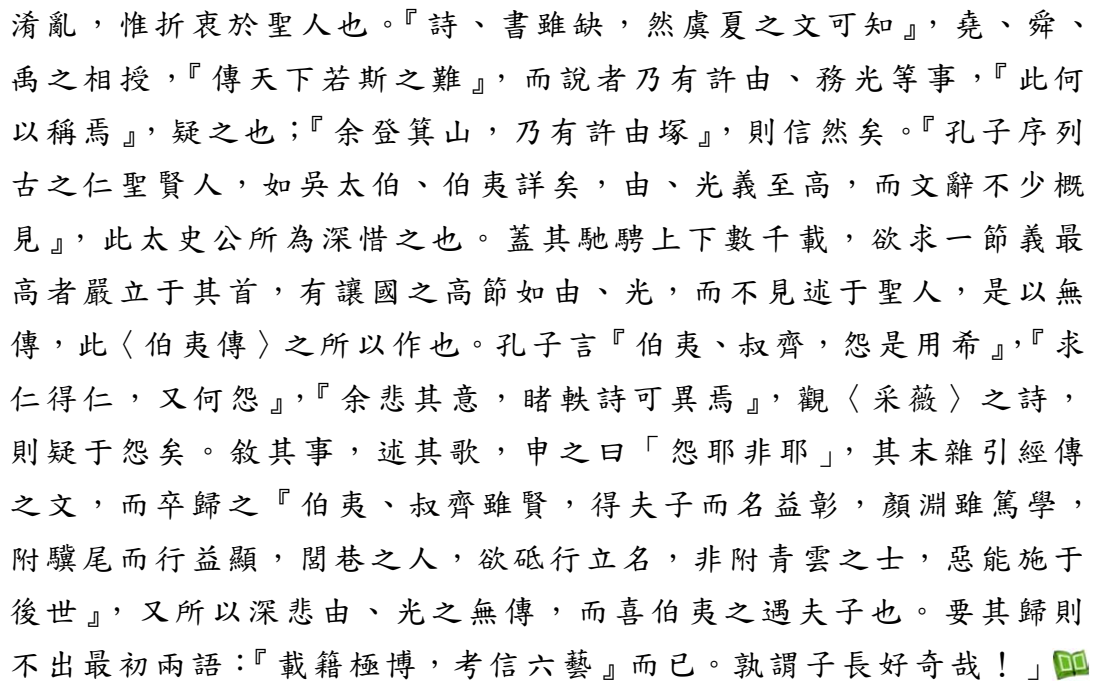 淆亂，惟折衷於聖人也。『詩、書雖缺，然虞夏之文可知』，堯、舜、
禹之相授，『傳天下若斯之難』，而說者乃有許由、務光等事，『此何
以稱焉』，疑之也；『余登箕山，乃有許由塚』，則信然矣。『孔子序列
古之仁聖賢人，如吳太伯、伯夷詳矣，由、光義至高，而文辭不少概
見』，此太史公所為深惜之也。蓋其馳騁上下數千載，欲求一節義最
高者嚴立于其首，有讓國之高節如由、光，而不見述于聖人，是以無
傳，此〈伯夷傳〉之所以作也。孔子言『伯夷、叔齊，怨是用希』，『求
仁得仁，又何怨』，『余悲其意，睹軼詩可異焉』，觀〈采薇〉之詩，
則疑于怨矣。敘其事，述其歌，申之曰「怨耶非耶」，其末雜引經傳
之文，而卒歸之『伯夷、叔齊雖賢，得夫子而名益彰，顏淵雖篤學，
附驥尾而行益顯，閭巷之人，欲砥行立名，非附青雲之士，惡能施于
後世』，又所以深悲由、光之無傳，而喜伯夷之遇夫子也。要其歸則
不出最初兩語：『載籍極博，考信六藝』而已。孰謂子長好奇哉！」